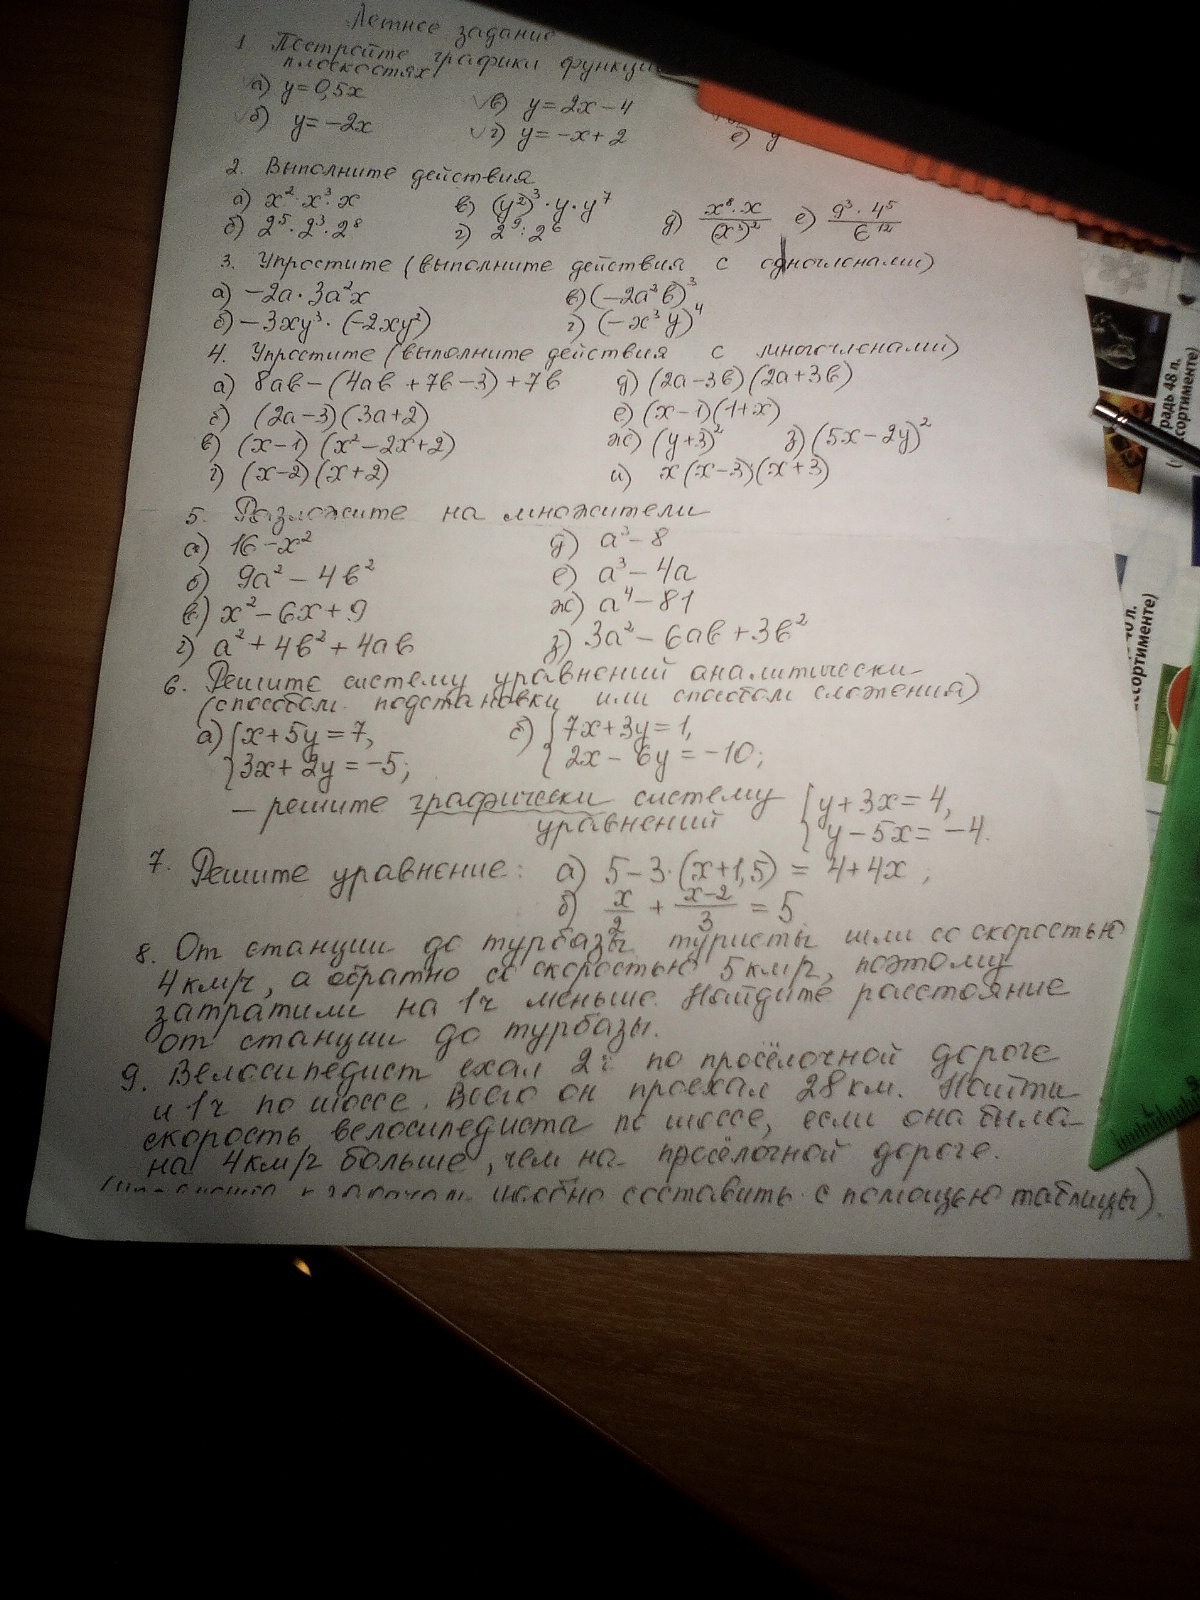 Летнее задание
1. Постройте графики функци
плоскостях
а) y=0,5x в) y=2x-4
б) y=-2x г) y=-x+2 е) y
2. Выполните действия
а) x²·x³·x в) (y²)³·y·y⁷ д) x⁸·x/(x³)² е) 9³·4⁵/6¹²
б) 2⁵·2³·2⁸ г) 2⁹:2⁶
3. Упростите (выполните действия с одночленами)
а) -2a·3a²x в) (-2a²b)³
б) -3xy³·(-2xy²) г) (-x³y)⁴
4. Упростите (выполните действия с многочленами)
а) 8ab-(4ab+7b-3)+7b д) (2a-3b)(2a+3b)
б) (2a-3)(3a+2) е) (x-1)(1+x)
в) (x-1)(x²-2x+2) ж) (y+3)² з) (5x-2y)²
г) (x-2)(x+2) и) x(x-3)(x+3)
5. Разложите на множители
а) 16-x² д) a³-8
б) 9a²-4b² е) a³-4a
в) x²-6x+9 ж) a⁴-81
г) a²+4b²+4ab з) 3a²-6ab+3b²
6. Решите систему уравнений аналитически
(способом подстановки или способом сложения)
а) {x+5y=7, б) {7x+3y=1,
3x+2y=-5; 2x-6y=-10;
- решите графически систему {y+3x=4,
уравнений y-5x=-4.
7. Решите уравнение: а) 5-3·(x+1,5)=4+4x;
б) x/2+x-2/3=5
8. От станции до турбазы туристы шли со скоростью
4км/ч, а обратно со скоростью 5км/ч, поэтому
затратили на 1ч меньше. Найдите расстояние
от станции до турбазы.
9. Велосипедист ехал 2ч по просёлочной дороге
и 1ч по шоссе. Всего он проехал 28км. Найти
скорость велосипедиста по шоссе, если она была
на 4км/ч больше, чем на просёлочной дороге.
составить с помощью таблицы).
традь 48 л.
сортименте)
ссортименте)